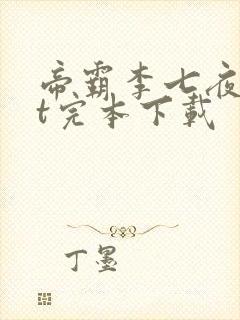 帝霸李七夜
t完本下载
丁墨